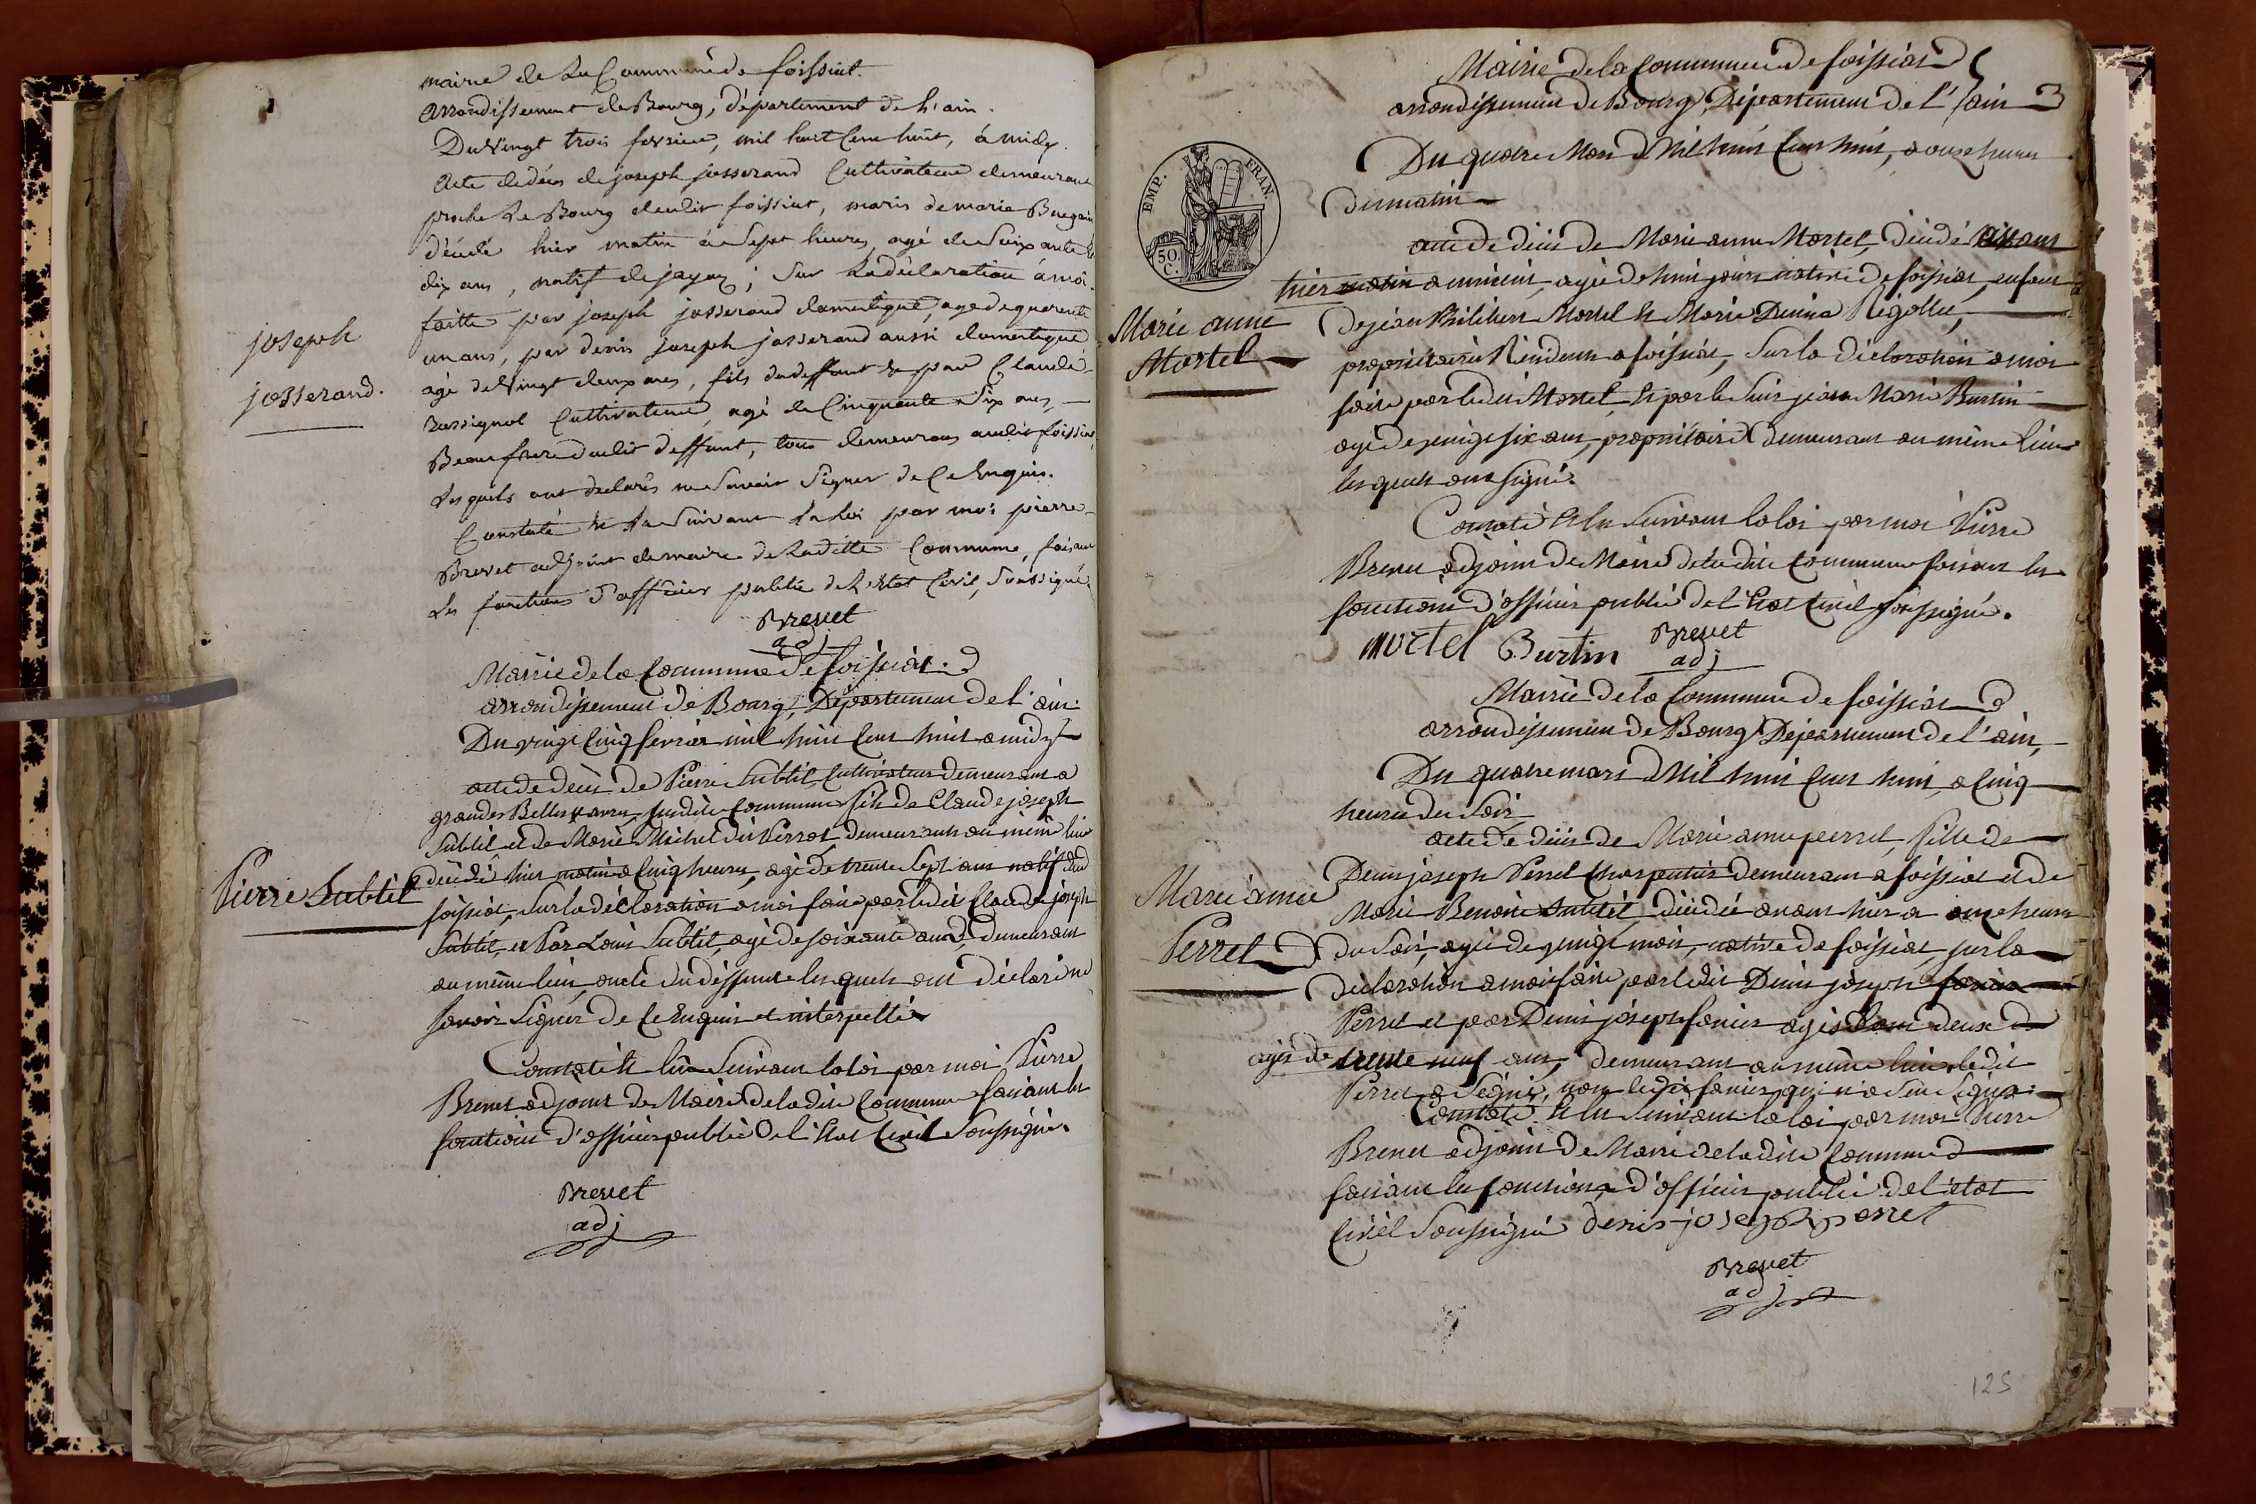 mairie de la Commune de foissiat.
arrondissement de Bourg, département de l'ain.
Du Vingt trois fevrier, mil huit Cent huit, à midy.
Acte de décès de joseph josserand Cultivateur demeurant
proche le Bourg dudit foissiat, maris de marie Bregain
décédé hier matin à Sept heures, agé de Soixante &
dix ans, natif de jayaz; Sur la déclaration à moi
faitte par joseph josserand domestique, age de quarente
un ans, par denis joseph josserand aussi domestique
agé de Vingt deux ans, fils du deffunt & par Claude
Rassignol Cultivateur, agé de Cinquante Six ans,
Beaufrere dudit deffunt, tous demeurans audit foissiat,
Lesquels ont declarés ne Savoir Signer de Ce Enquis.
Constaté & lu Suivant la Loi par moi pierre
Brevet adjoint de maire de Laditte Commune, faisant
Les fonctions d'officier public de l'etat Civil, Soussigné.
Brevet
adj
joseph
josserand.
Mairie de la Commune de foissiat.
arrondissement de Bourg, Département de l'ain.
Du vingt Cinq fevrier mil huit Cent huit a midy
acte de decès de Pierre Subtil, Cultivateur demeurant a
grandes Belles vavres, susdite Commune fils de Claude joseph
Subtil et de Marie Michel du Perrat demeurants au même lieu
décédé hier matin a Cinq heures, agé de trente Sept ans natif dud
foissiat, Sur la déclaration a moi faite par ledit Claude joseph
Subtil, et Par Louis Subtil, agé de soixante ans demeurant
au même lieu, oncle du deffunt lesquels ont déclaré ne
Savoir Signer de Ce Enquis et interpellés
Constaté & lu Suivant la loi par moi Pierre
Brevet adjoint de Maire de ladite Commune faisant les
fonctions d'officier public de l'Etat Civil Soussigné.
Brevet
adj
Pierre Subtil
Mairie de la Commune de foissiat
arrondissement de Bourg, Département de l'ain
Du quatre Mars Mil huit Cent huit, a onze heures
du matin
acte de décès de Marie anne Mortel, décédé
hier matin a minuit, agée de huit jours native de foissiat, enfant
de jean Philibert Mortel & Marie Denise Rigollet,
propriétaire Résidents a foissiat, Sur la déclaration a moi
faite par ledit Mortel, & par le Sieur jean Marie Burtin
agé de vingt six ans, propriétaire demeurant au même lieu
lesquels ont signé.
Constaté & lu Suivant la loi par moi Pierre
Brevet adjoint de Maire de ladite Commune faisant les
fonctions d'officier public de l'Etat Civil soussigné.
mortel Burtin Brevet
adj
EMP. FRAN.
50 C.
Marie anne
Mortel
Mairie de la Commune de foissiat
arrondissement de Bourg Département de l'ain,
Du quatre mars Mil huit Cent huit, a Cinq
heures du Soir
acte de décès de Marie anne perret, fille de
Denis joseph Perret Charpentier demeurant a foissiat et de
Marie Benoite Subtil, décédée avant hier a onze heures
du Soir, agée de vingt mois, native de foissiat, sur la
déclaration a moi faite par ledit Denis joseph
Perret et par Denis joseph fanier agés deux
agés de trente neuf ans, demeurant au même lieu, ledit
Perret a Signé, non ledit fanier qui n'a Seu Signer.
Constaté & lu Suivant la loi par moi Pierre
Brevet adjoint de Maire de ladite Commune
faisant les fonctions d'officier public de l'etat
Civil Soussigné denis joseph perret
Brevet
adj
Marie anne
Perret
125